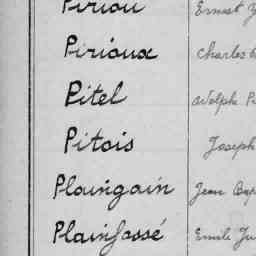 Piriou Ernest
Pirioux Charles
Pitel Adolphe
Pitois Joseph
Plaingain Jean
Plainfossé Emile